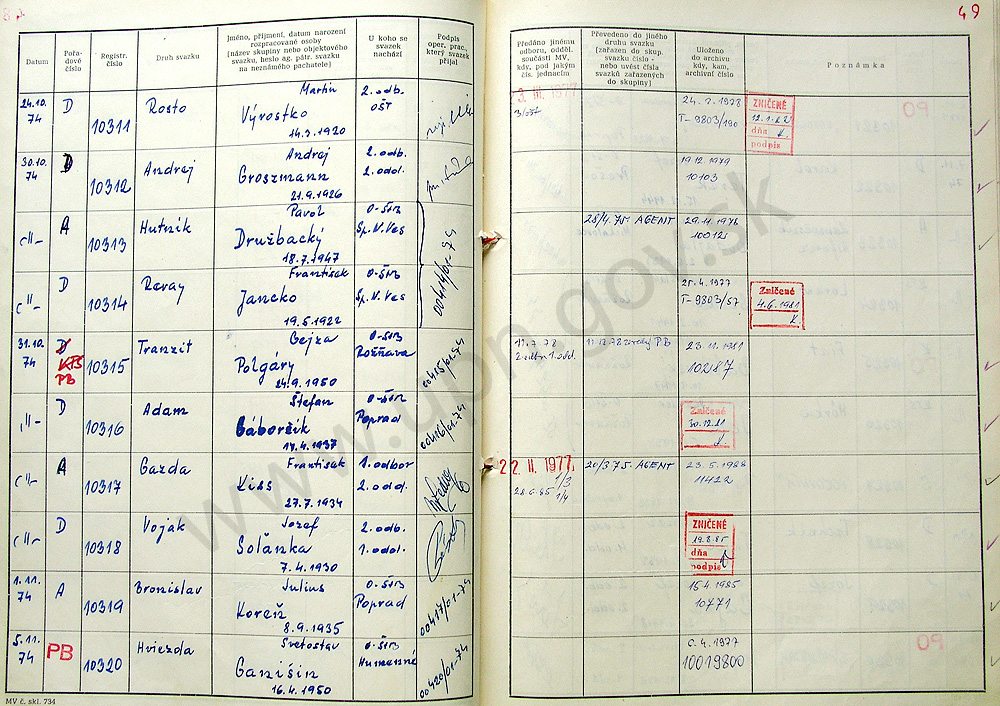 49
Datum
Pořa-
dové
číslo
Registr.
číslo
Druh svazku
Jméno, příjmení, datum narození
rozpracované osoby
(název skupiny nebo objektového
svazku, heslo ag. pátr. svazku
na neznámého pachatele)
U koho se
svazek
nachází
Podpis
oper. prac.
který svazek
přijal
Předáno jinému
odboru, odděl.
součásti MV,
kdy, pod jakým
čís. jednacím
Převedeno do jiného
druhu svazku
(zařazen do skup.
svazku číslo -
nebo uvést čísla
svazků zařazených
do skupiny)
Uloženo
do archivu
kdy, kam,
archivní číslo
Poznámka
24.10.
74
D
10311
Rosto
Martin
Výrostko
14.3.1920
2. odb.
OŠT
3. III. 1977
24. 2. 1978
T- 9803/190
ZNIČENÉ
dňa
podpis
30.10.
74
D
10312
Andrej
Andrej
Groszmann
21.9.1926
2. odb.
2. odd.
19.12.1979
10103
-"-
A
10313
Hutník
Pavol
Družbacký
18.7.1947
O-ŠtB
Sp.N.Ves
00414/01-74
28/4.75. AGENT
29.11.1976
10012
-"-
D
10314
Revay
František
Jancko
19.5.1922
O-ŠtB
Sp.N.Ves
25.4.1977
T-9803/57
Zničené
4.6.1981
31.10.
74
D
KTS
PB
10315
Tranzit
Gejza
Polgáry
24.9.1950
O-ŠtB
Rožňava
00415/01-74
11.7.78
2.odb. 1.odd.
11.12.78 PB
23.11.1981
10287
-"-
D
10316
Adam
Štefan
Gáboršík
14.4.1937
O-ŠtB
Poprad
00416/01-74
Zničené
30.12.81
-"-
A
10317
Gazda
František
Kiss
27.7.1934
1. odbor
2. odd.
22. II. 1977
1/3
28.6.85 1/4
20/3.75. AGENT
23.5.1988
11422
-"-
D
10318
Voják
Jozef
Solánka
7.4.1930
2. odb.
1. odd.
ZNIČENÉ
19.8.85
dňa
podpis
1.11.
74
A
10319
Bronislav
Július
Koreň
8.9.1935
O-ŠtB
Poprad
00417/01-74
15.4.1985
10771
5.11.
74
PB
10320
Hviezda
Svetoslav
Ganišin
16.4.1950
O-ŠtB
Humenné
00420/01-74
6.4.1977
10019800
MV č. skl. 734
www.upn.gov.sk